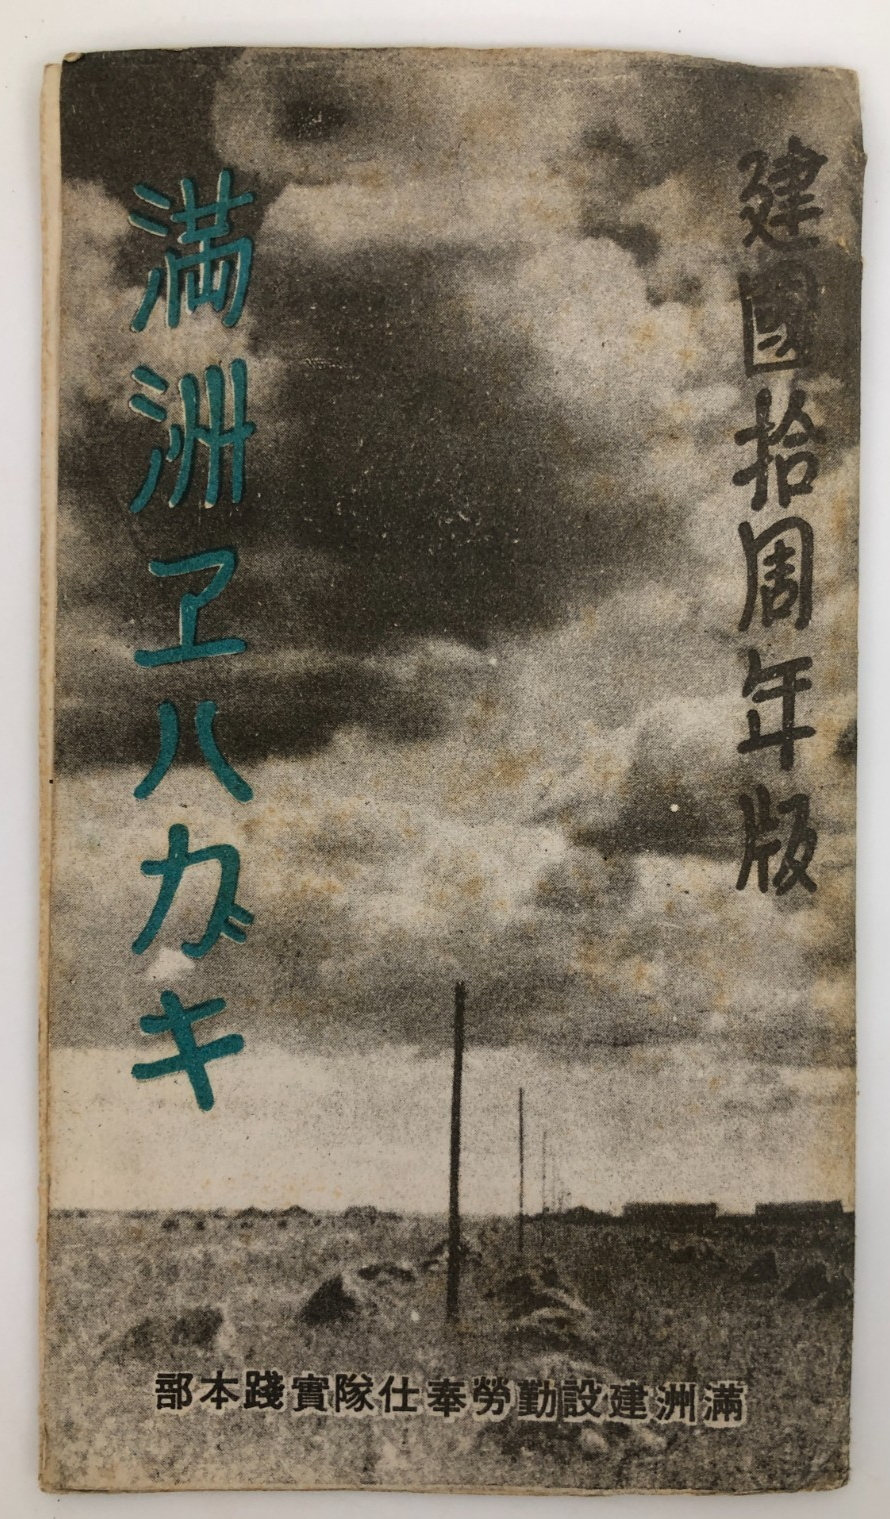 建國拾周年版
満洲ヱハガキ
滿洲建設勤勞奉仕隊實踐本部